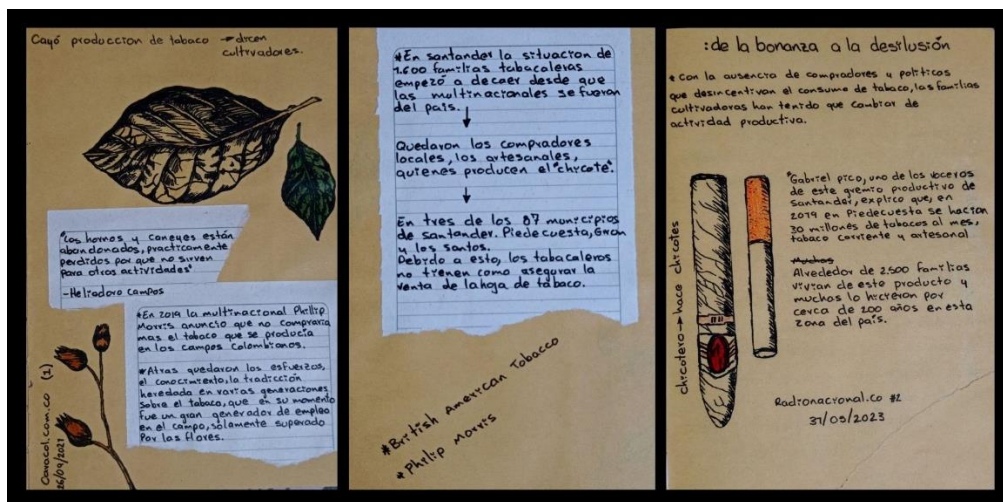 Cayó produccion de tabaco → dicen
cultivadores.
"Los hornos y caneyes están
abandonados, practicamente
perdidos por que no sirven
para otras actividades"
-Heliodoro Campos
*En 2019 la multinacional Philip
Morris anuncio que no compraria
mas el tabaco que se producia
en los campos Colombianos.
*Atras quedaron los esfuerzos,
el conocimiento, la tradicción
heredada en varias generaciones
sobre el tabaco, que en su momento
fue un gran generador de empleo
en el campo, solamente superado
Por las flores.
Caracol.com.co (1)
26/09/2021
*En santander la situacion de
1.600 familias tabacaleras
empezó a decaer desde que
las multinacionales se fueran
del pais.
Quedaron los compradores
locales, los artesanales,
quienes producen el "chicote".
En tres de los 87 municipios
de santander. Piedecuesta, Giron
y los santos.
Debido a esto, los tabacaleros
no tienen como asegurar la
venta de la hoja de tabaco.
*British American Tobacco
*Philip Morris
:de la bonanza a la desilusión
*Con la ausencia de compradores y politicas
que desincentivan el consumo de tabaco, las familias
cultivadoras han tenido que cambiar de
actividad productiva.
chicotero → hace chicotes
"Gabriel pico, uno de los voceros
de este gremio productivo de
santander, explico que, en
2019 en Piedecuesta se hacian
30 millones de tabacos al mes,
tabaco corriente y artesanal
Muchas
Alrededor de 2.500 familias
vivian de este producto y
muchas lo hicieron por
cerca de 200 años en esta
zona del país.
Radionacional.co #2
31/05/2023